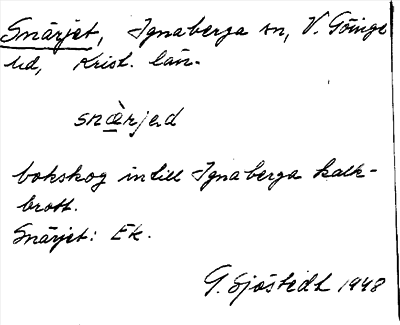 Snärjet, Ignaberga sn, V. Göinge
hd, Krist. län.
snæ̀rjəd
bokskog intill Ignaberga kalk-
brott.
Snärjet: Ek.
G. Sjöstedt 1948